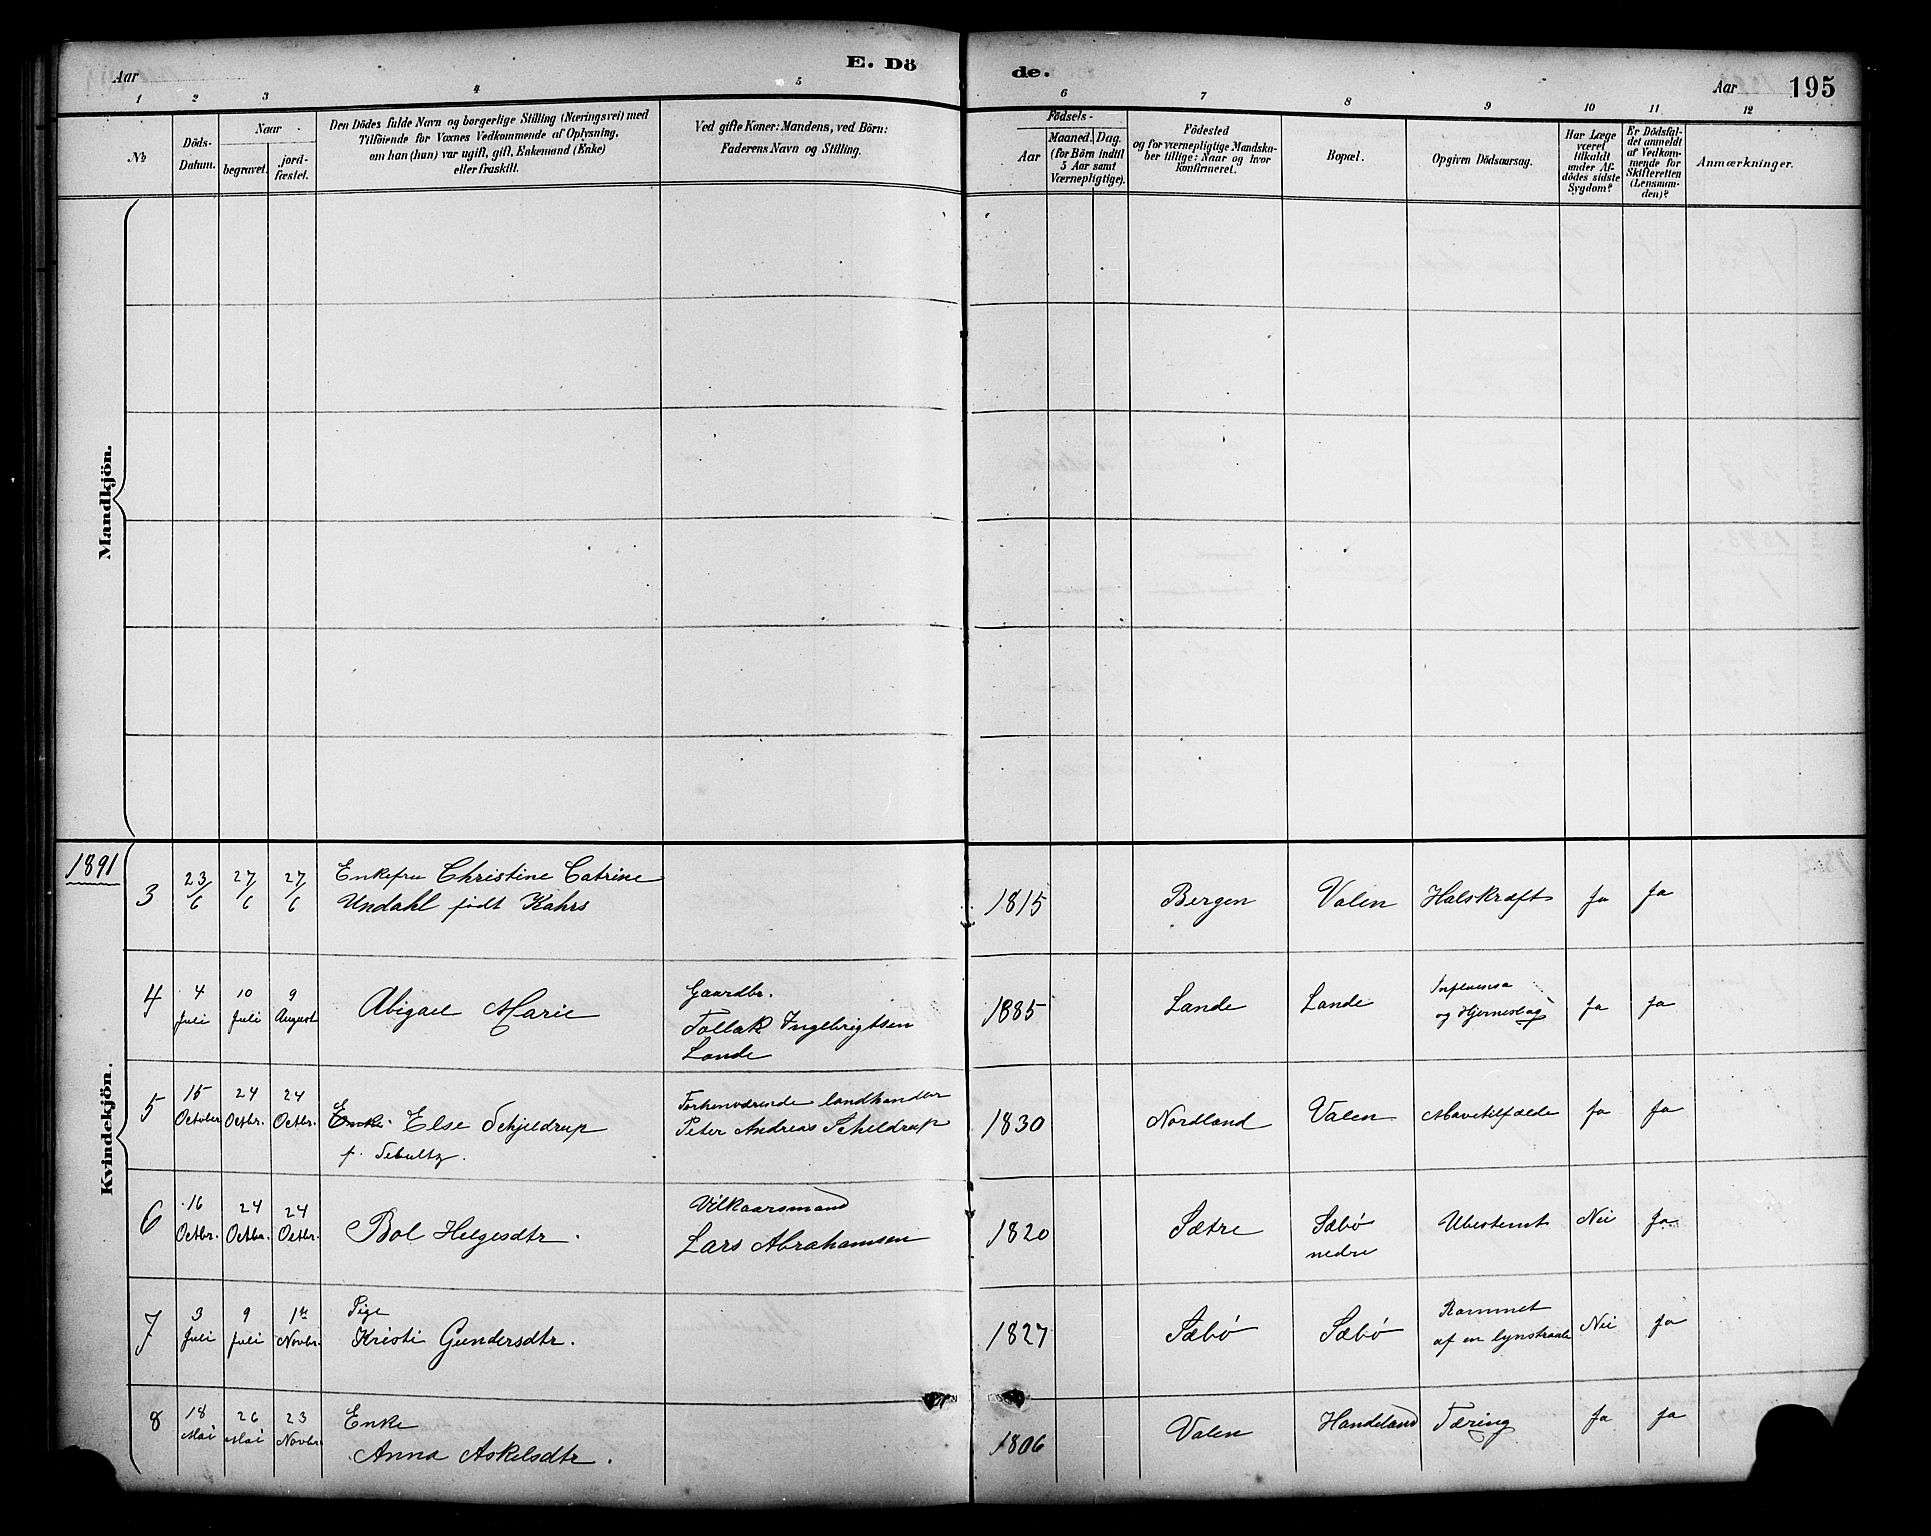 Aar
E. Dö
de.
Aar 195
1 2 3 4 5 6 7 8 9 10 11 12
№
Döds-
Datum.
Naar
begravet.
jord-
fæstet.
Den Dödes fulde Navn og borgerlige Stilling (Næringsvei) med
Tilföiende for Voxnes Vedkommende af Oplysning,
om han (hun) var ugift, gift, Enkemand (Enke)
eller fraskilt.
Ved gifte Koner: Mandens, ved Börn:
Faderens Navn og Stilling.
Födsels-
Aar
Maaned. Dag.
(for Börn indtil
5 Aar samt
Værnepligtige).
Födested
og for værnepligtige Mandska-
ber tillige: Naar og hvor
konfirmeret.
Bopæl.
Opgiven Dödsaarsag.
Har Læge
været
tilkaldt
under Af-
dödes sidste
Sygdom?
Er Dödsfal-
det anmeldt
af Vedkom-
mende for
Skifteretten
(Lensman-
den)?
Anmærkninger.
Mandkjön.
Kvindekjön.
1891
3 23/6 27/6 27/6 Enkefru Christine Catrine
Undahl født Kahrs
1815 Bergen Valen Halskræft Ja Ja
4 4 Juli 10 Juli 9 August Abigael Marie
Gaardbr.
Tollak Ingebrigtsen
Lande
1885 Lande Lande Influensa
og Hjerneslag Ja Ja
5 15 October 24 Octbr. 24 Octbr. Enke. Else Schjeldrup
f. Schultz.
Forhenværende landhandler
Peter Andreas Scheldrup
1830 Nordland Valen Mavetilfælde Ja Ja
6 16 Octbr. 24 Octbr. 24 Octbr. Bol Helgesdtr.
Vilkaarsmand
Lars Abrahamsen
1820 Sætre Sæbø
nedre Ubestemt Nei Ja
7 3 Juli 9 Juli 1te Novbr. Pige
Kristi Gundersdtr.
1827 Sæbø Sæbø Rammet
af en lynstraale Nei Ja
8 18 Mai 26 Mai 23 Novbr Enke
Anna Askelsdtr.
1806 Valen Handeland Tæring Ja Ja